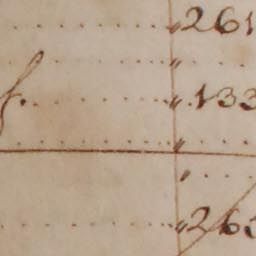 ..........„261
..........„
f..........„.133
..........„....
„....
..........„26